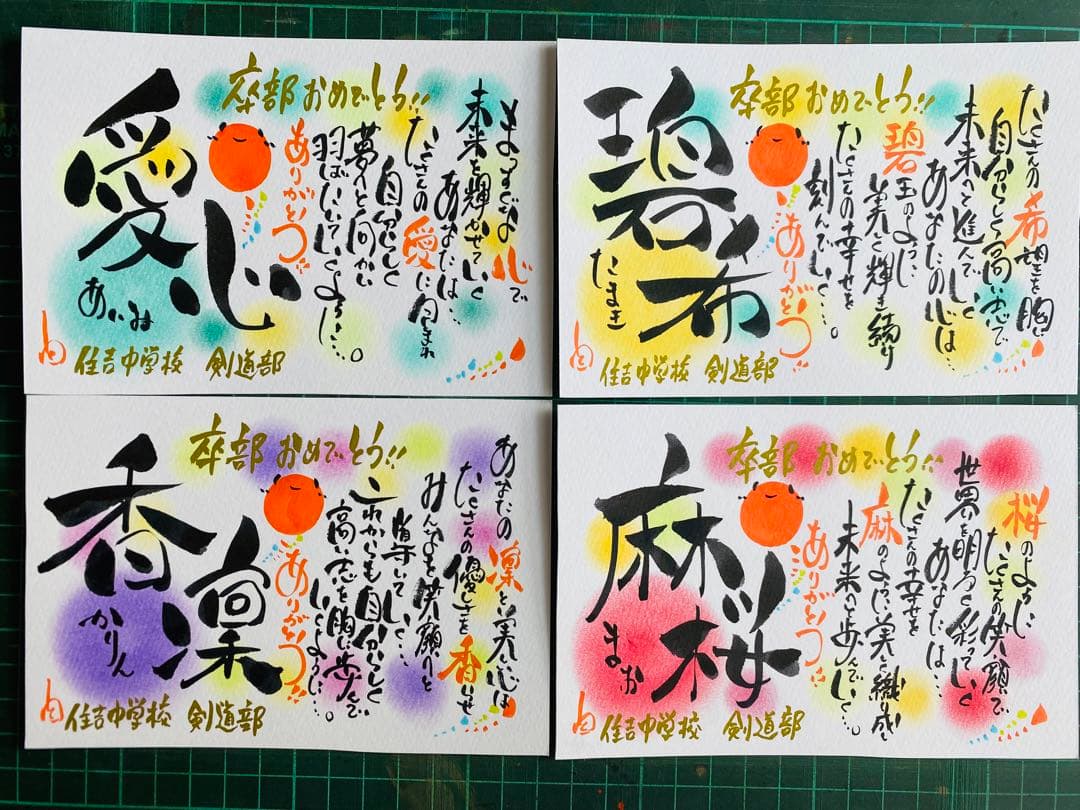 卒部おめでとう!!
愛心
あいみ
ありがとう!!
まっすぐな心で
未来を輝かせていく
あなたは
たくさんの愛に包まれ
自分らしく
夢へと向かい
羽ばたいていくでしょう…。
住吉中学校 剣道部
卒部おめでとう!!
碧希
たまき
ありがとう!!
たくさんの希望を胸に
自分らしく高い志で
未来へと進んでいく
あなたの心は…
碧玉のように
美しく輝き続け
たくさんの幸せを
刻んでいく…。
住吉中学校 剣道部
卒部おめでとう!!
香凜
かりん
ありがとう!!
あなたの凜と美しい心は
たくさんの優しさを香らせ
みんなを笑顔へと
導いていく…
これからも自分らしく
高い志を胸に歩んで
いくでしょう…。
住吉中学校 剣道部
卒部おめでとう!!
麻桜
まお
ありがとう!!
桜のように
たくさんの笑顔で
世界を明るく彩っていく
あなたは…
たくさんの幸せを
麻のように美しく織り成し
未来へ歩んでいく…。
住吉中学校 剣道部